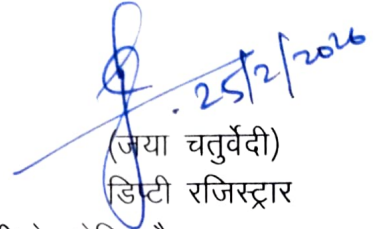 25/2/2026
(जया चतुर्वेदी)
डिप्टी रजिस्ट्रार